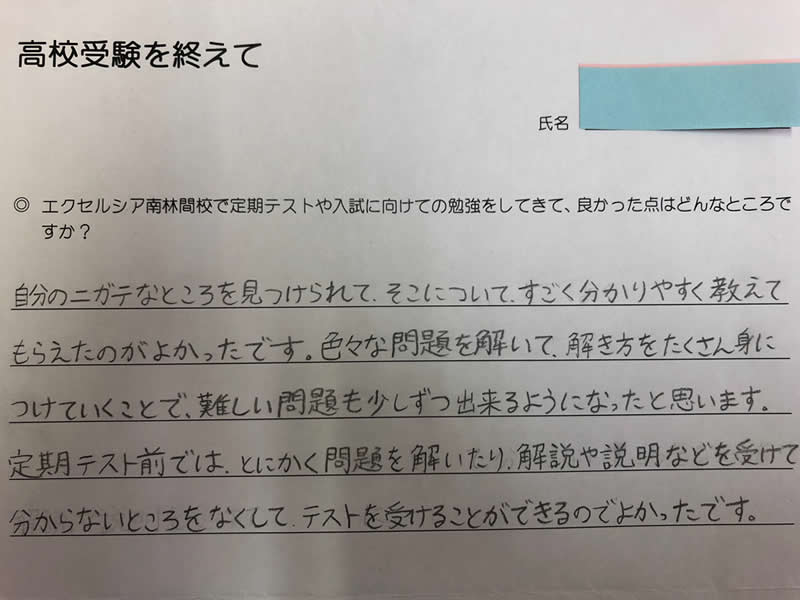 高校受験を終えて
氏名
◎ エクセルシア南林間校で定期テストや入試に向けての勉強をしてきて、良かった点はどんなところで
すか?
自分のニガテなところを見つけられて、そこについて、すごく分かりやすく教えて
もらえたのがよかったです。色々な問題を解いて、解き方をたくさん身に
つけていくことで、難しい問題も少しずつ出来るようになったと思います。
定期テスト前では、とにかく問題を解いたり、解説や説明などを受けて
分からないところをなくして、テストを受けることができるのでよかったです。